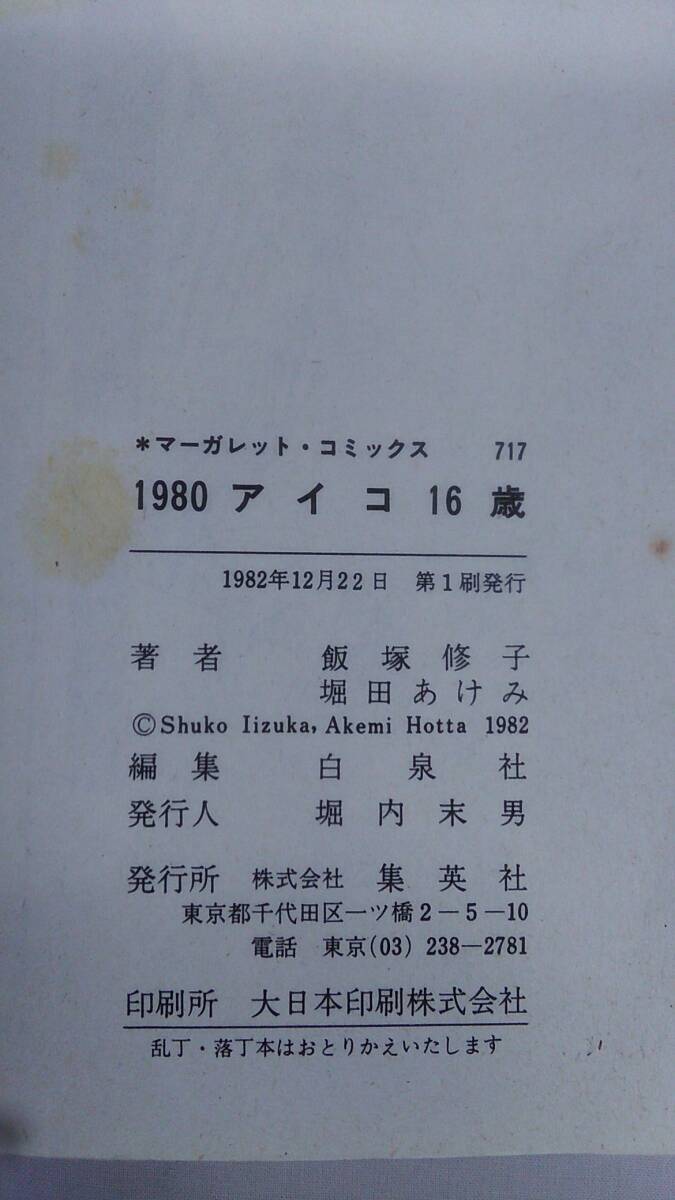 *マーガレット・コミックス 717
1980 アイコ 16 歳
1982年12月22日 第1刷発行
著者 飯塚修子
堀田あけみ
©Shuko Iizuka, Akemi Hotta 1982
編集 白泉社
発行人 堀内末男
発行所 株式会社 集英社
東京都千代田区一ツ橋2－5－10
電話 東京(03) 238－2781
印刷所 大日本印刷株式会社
乱丁・落丁本はおとりかえいたします